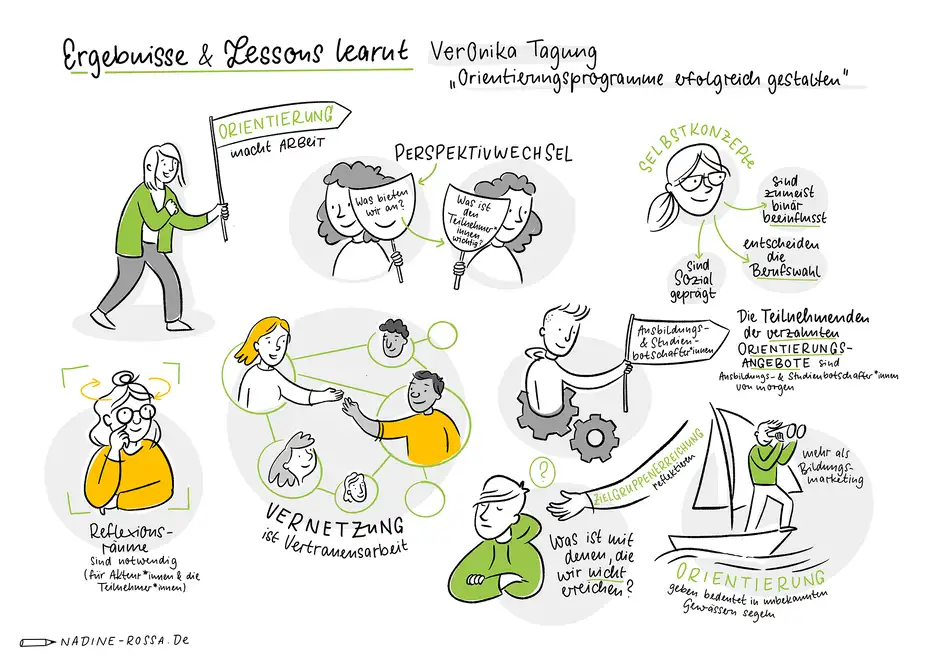 Ergebnisse & Lessons learnt
VerOnika Tagung
„Orientierungsprogramme erfolgreich gestalten"
ORIENTIERUNG
macht ARBEIT
PERSPEKTIVWECHSEL
Was bieten
wir an?
Was ist
den
Teilnehmer*
innen
wichtig?
SELBSTKONZEPTE
sind
zumeist
binär
beeinflusst
entscheiden
die
Berufswahl
sind
sozial
geprägt
Reflexions-
räume
sind notwendig
(für Akteur*innen & die
Teilnehmer*innen)
VERNETZUNG
ist Vertrauensarbeit
Ausbildungs-
& Studien-
botschafter*innen
Die Teilnehmenden
der verzahnten
ORIENTIERUNGS-
ANGEBOTE sind
Ausbildungs- & Studienbotschafter*innen
von morgen
?
ZIELGRUPPENERREICHUNG
reflektieren
Was ist mit
denen, die
wir nicht
erreichen?
mehr als
Bildungs-
marketing
ORIENTIERUNG
geben bedeutet in unbekannten
Gewässern segeln
NADINE-ROSSA.De